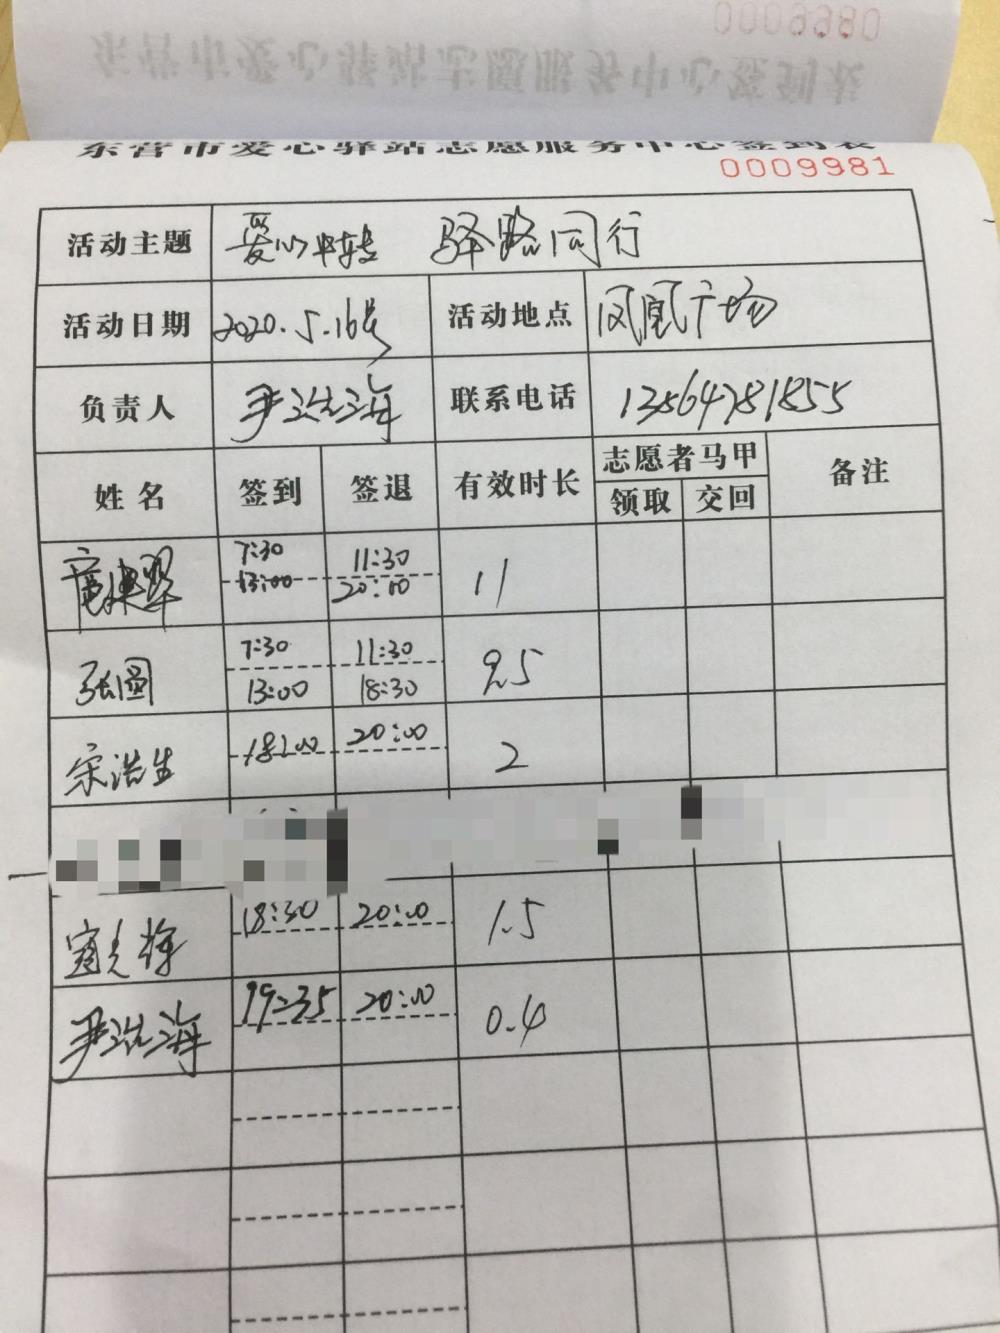 东营市爱心驿站志愿服务中心签到表
0009981
活动主题 爱心中转 驿路同行
活动日期 2020.5.16号 活动地点 凤凰广场
负责人 尹洪海 联系电话 13564781855
姓名 签到 签退 有效时长 志愿者马甲 备注
领取 交回
7:30 11:30
13:00 20:00 11
张圆 7:30 11:30 9.5
13:00 18:30
宋浩生 18:00 20:00 2
18:30 20:00 1.5
尹洪海 19:35 20:00 0.4